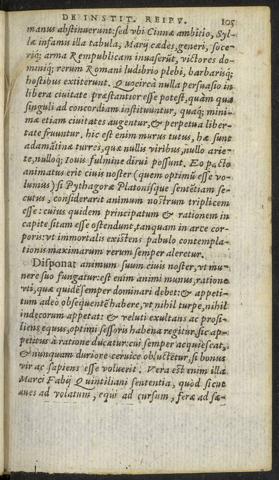 DE INSTIT. REIPV. 105
manus abstinuerunt: sed vbi Cinnæ ambitio, Syl-
læ infamis illa tabula, Marij cædes, generi, soce-
riq; arma Rempublicam inuaserūt, victores do-
miniq; rerum Romani ludibrio plebi, barbarisq;
hostibus extiterunt. Quocirca nulla persuasio in
libera ciuitate præstantior esse potest, quàm quæ
singuli ad concordiam instituuntur, quæq; mini-
mæ etiam ciuitates augentur, & perpetua liber-
tate fruuntur, hic est enim murus tutus, hæ sunt
adamātinæ turres, quæ nullis viribus, nullo arie-
te, nulloq; Iouis fulmine dirui possunt. Eo pacto
animatus erit ciuis noster (quem optimū esse vo-
lumus) si Pythagoræ Platonisque sentētiam se-
cutus, considerarit animum nostrum triplicem
esse: cuius quidem principatum & rationem in
capite sitam esse ostendunt, tanquam in arce cor-
poris: vt immortalis existens pabulo contempla-
tionis maximarum rerum semper aleretur.
Disponat animum suum ciuis noster, vt mu-
nere suo fungatur: est enim animi munus, ratione
vti, quæ quidē semper dominari debet: & appeti-
tum adeò obsequentē habere, vt nihil turpe, nihil
indecorum appetat: & veluti exultans ac prosi-
liens equus, optimi sessoris habena regitur, sic ap-
petitus à ratione ducatur: cui semper acquiescat,
& nunquam duriore ceruice obluctetur, si bonus
vir ac sapiens esse voluerit. Vera est enim illa
Marci Fabij Quintiliani sententia, quòd sicut
aues ad volatum, equi ad cursum, feræ ad sæ-